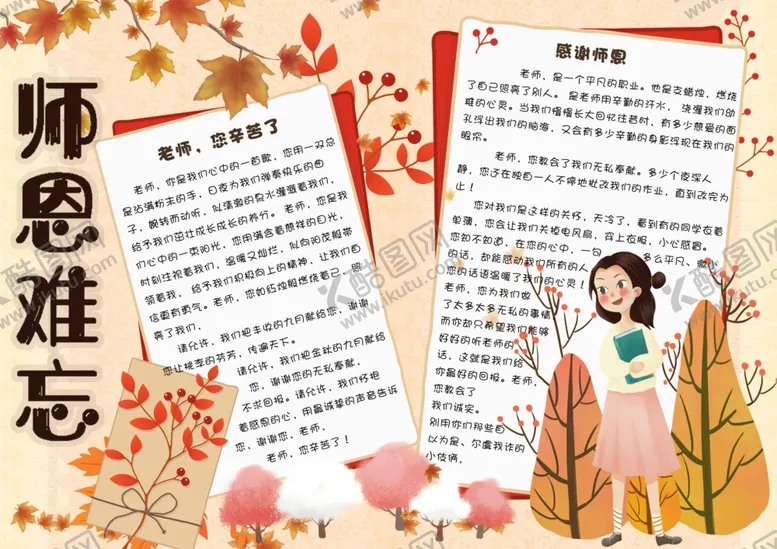 师恩难忘
老师，您辛苦了
老师，你是我们心中的一首歌，您用一双总
是沾满粉末的手，日夜为我们弹奏快乐的曲
子，婉转而动听，似清澈的泉水灌溉着我们，
给予我们茁壮成长成长的养分。老师，您是我
们心中的一束阳光，您用满含着慈祥的目光，
时刻注视着我们，温暖又灿烂，似向阳般带
领着我， 给予我们积极向上的精神，让我们自
信更有勇气。老师，您如红烛般燃烧着己，照
亮了我们，
请允许，我们把丰收的九月献给您，谢谢
您让桃李的芬芳，传遍天下。
请允许，我们把金秋的九月献给
您，谢谢您的无私奉献，
不求回报。请允许，我们怀抱
着感恩的心，用最诚挚的声音告诉
您，谢谢您，老师，
老师，您辛苦了！
感谢师恩
老师，是一个平凡的职业。他是支蜡烛，燃烧
了自己照亮了别人。 是老师用辛勤的汗水， 浇灌我们幼
难的心灵。当我们慢慢长大回忆往昔时，有多少慈爱的面
孔浮出我们的脑海，又会有多少辛勤的身影浮现在我们的
眼帘。
老师，您教会了我们无私奉献。多少个夜深人
静，您还在独自一人不停地批改我们的作业，直到改完为
止！
您对我们是这样的关怀，天冷了，看到有的同学衣着
单薄，您会让我们关掉电风扇，穿上衣服，小心感冒。
您如不知道，在您的心中，一句 多么平凡、
的话，却能感动我们所有的人
您的话语温暖了我们的心灵！
老师，您为我们做
了太多太多无私的事情
而你却只希望我们能够
好好的听老师的
话，这就是我们给
你最好的回报。老师，
您教会了
我们诚实。
别用你们那些自
以为是、尔虞我诈的
小伎俩，
K酷图网
www.ikutu.com
K酷图网
www.ikutu.com